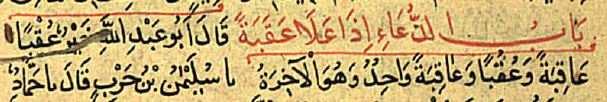 بَابُ الدُّعَاءِ إِذَا عَلَا عَقَبَةً قَالَ أَبُو عَبْدِ اللَّهِ خَيْرٌ عُقْبًا
عَاقِبَةً وَعُقْبًا وَعَاقِبَةً وَاحِدٌ وَهُوَ الْآخِرَةُ نا سُلَيْمٰنُ بْنُ حَرْبٍ قَالَ نا حَمَّادُ